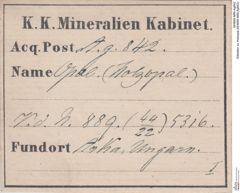 K.K. Mineralien Kabinet.
Acq. Post. A.g. 842.
Name Opal. (Holzopal.)
889. (44/22) 5316.
Fundort Ungarn.
I